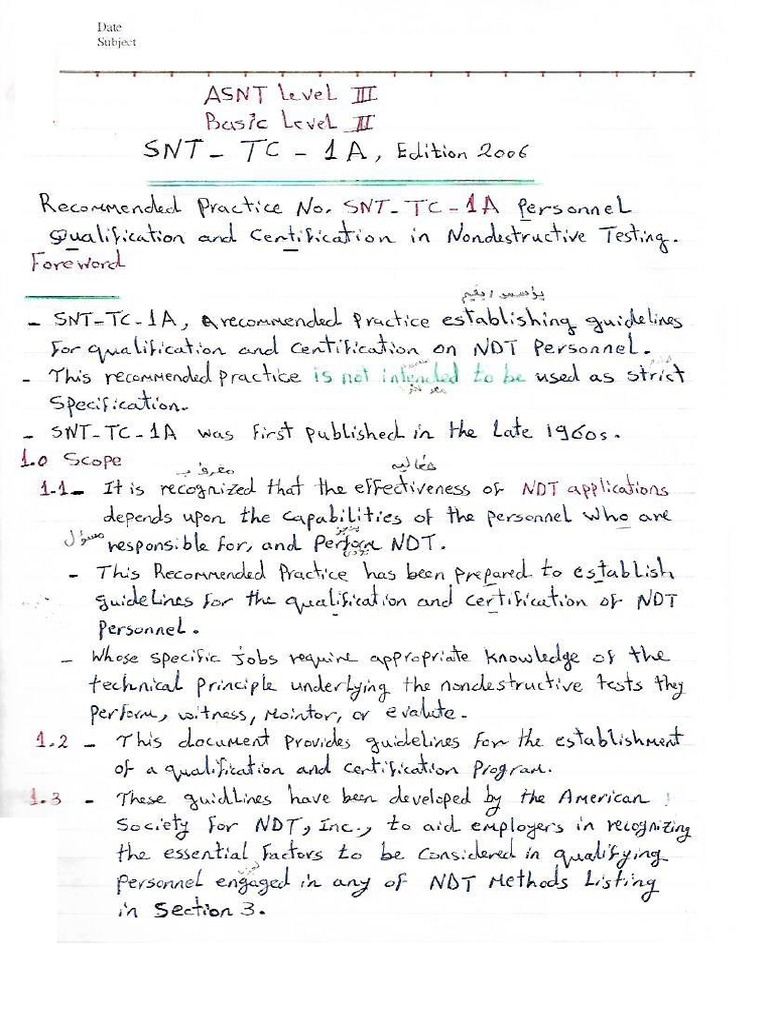 Date
Subject
ASNT Level III
Basic Level II
SNT - TC - 1A, Edition 2006
Recommended Practice No. SNT-TC-1A Personnel
Qualification and Certification in Nondestructive Testing.
Foreword
يؤسس أو يقيم
- SNT-TC-1A, a recommended Practice establishing guidelines
for qualification and certification on NDT Personnel.
- This recommended practice is not intended to be used as strict
Specification.
- SNT-TC-1A was first published in the Late 1960s.
1.0 Scope
معروف ب فعاليه
1.1- It is recognized that the effectiveness of NDT applications
depends upon the capabilities of the personnel who are
مسؤل responsible for, and Perform NDT.
- This Recommended Practice has been prepared to establish
guidelines for the qualification and certification of NDT
Personnel.
- Whose specific jobs require appropriate knowledge of the
technical principle underlying the nondestructive tests they
Perform, witness, Mointor, or evalute.
1.2 - This document provides guidelines for the establishment
of a qualification and certification Program.
1.3 - These guidllines have been developed by the American
Society for NDT, Inc., to aid employers in recognizing
the essential factors to be Considered in qualifying
personnel engaged in any of NDT Methods Listing
in Section 3.